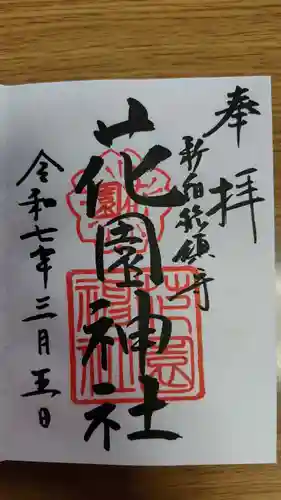 奉拝
新宿総鎮守
花園神社
令和七年三月五日